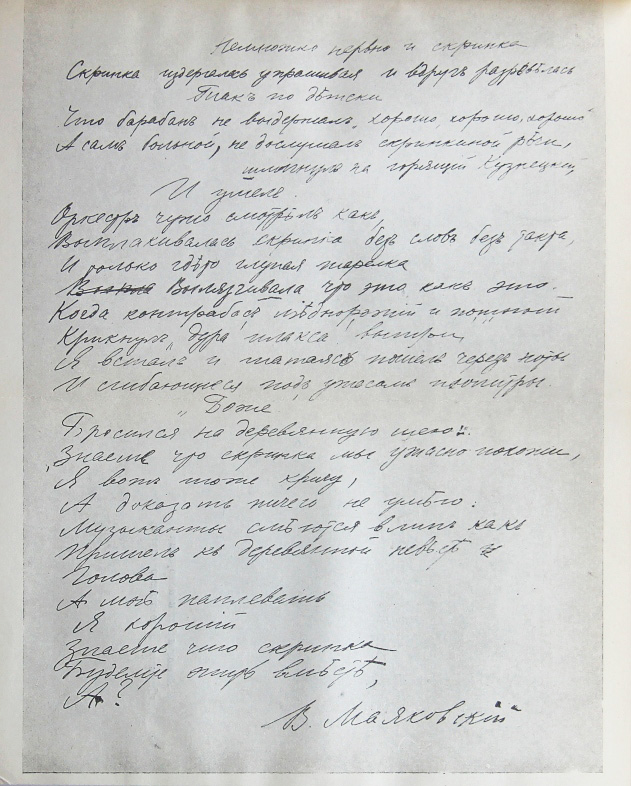 Немножко нервно и скрипка
Скрипка издергалась упрашивая и вдругъ разревѣлась
Такъ по дѣтски
Что барабанъ не выдержалъ, хорошо, хорошо, хорошо
А самъ больной, не дослушалъ скрипкиной рѣчи,
шмыгнулъ на горящій Кузнецкій
И ушелъ.
Оркестръ чужо смотрѣлъ какъ,
Выплакивалась скрипка безъ словъ безъ такта,
И только гдѣто глупая тарелка
Вылязгивала что это какъ это.
Когда контрабасъ мѣднорожій и потный
Крикнулъ, дура плакса вытри,
Я всталъ и шатаясь полѣзъ черезъ ноты
И сгибающіеся подъ ужасомъ пюпитры.
„Боже
Бросился на деревянную шею:
„Знаете что скрипка мы ужасно похожи,
Я вотъ тоже кричу,
А доказать ничего не умѣю:
Музыканты смѣются влипъ какъ
Пришелъ къ деревянной невѣстѣ
Голова
А мнѣ наплевать
Я хорошій
Знаете что скрипка
Будемте жить вмѣстѣ,
А?
В. Маяковскій